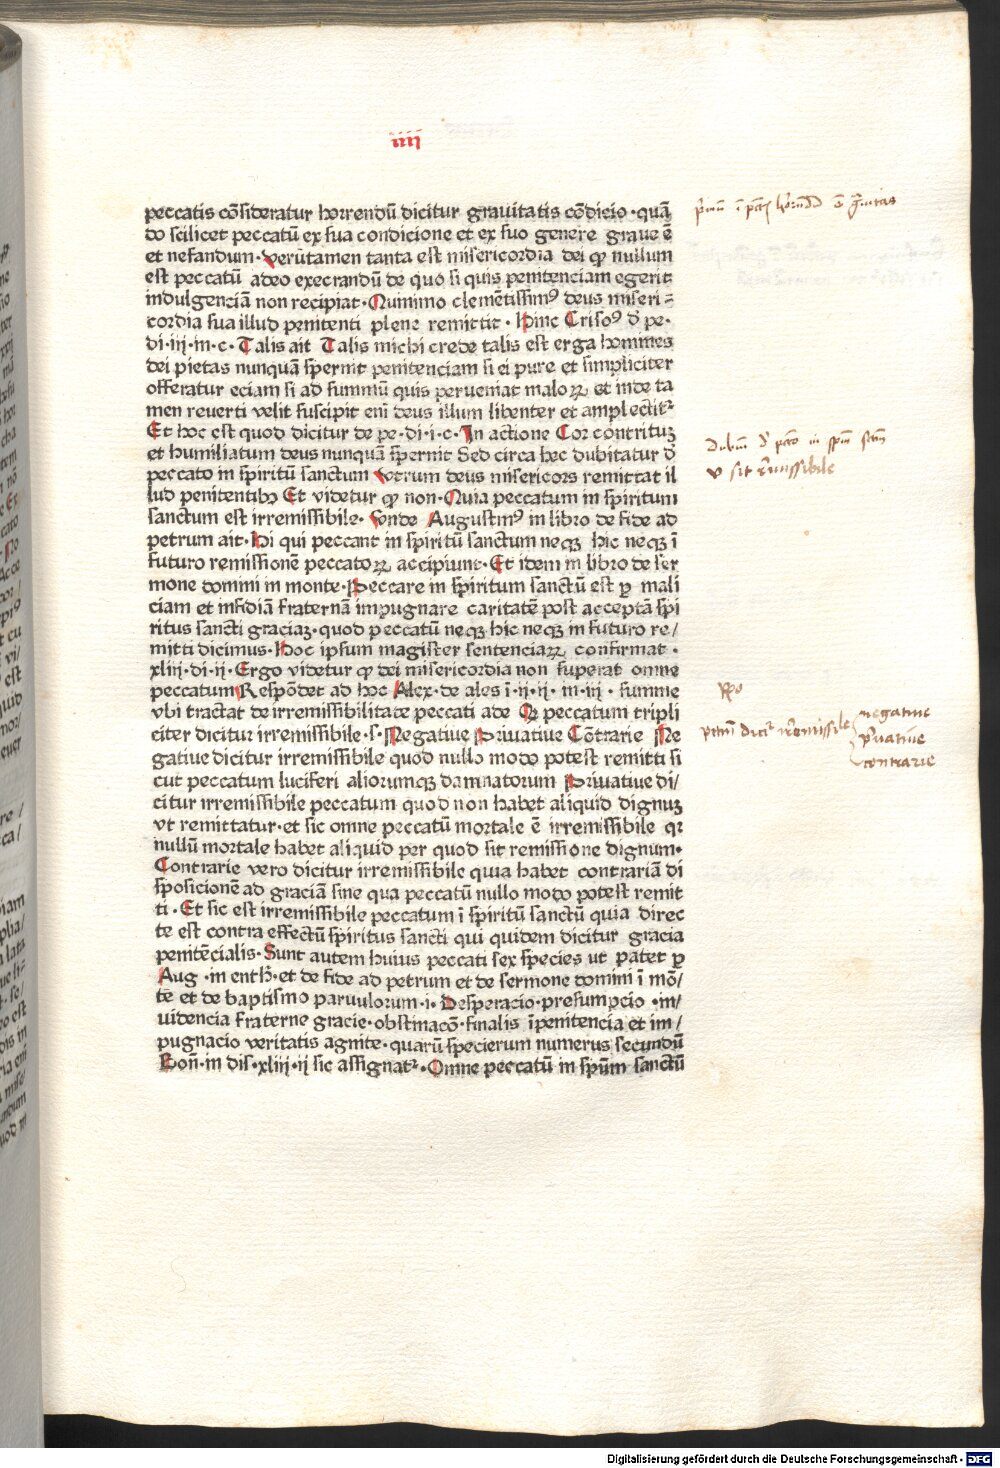 iiij
peccatis cōsideratur horrendū dicitur grauitatis cōdicio·quā
do scilicet peccatū ex sua condicione et ex suo genere graue ē
et nefandum·Verūtamen tanta est misericordia dei ꝙ nullum
est peccatū adeo execrandū de quo si quis penitenciam egerit
indulgenciā non recipiat·Quinimo clemētissimꝰ deus miseri-
cordia sua illud penitenti plene remittit·Hinc Crisoꝰ ď pe·
di·iij·in·c·Talis ait Talis michi crede talis est erga homines
dei pietas nunquā spernit penitenciam si ei pure et simpliciter
offeratur eciam si ad summū quis perueniat maloꝝ et inde ta
men reuerti velit suscipit eni deus illum libenter et amplectit᷑
Et hoc est quod dicitur de pe·di·i·c·In actione Cor contrituꝫ
et humiliatum deus nunquā spernit Sed circa hec dubitatur ď
peccato in spiritū sanctum Vtrum deus misericors remittat il
lud penitentibꝫ Et videtur ꝙ non·Quia peccatum in spiritum
sanctum est irremissibile·Vnde Augustinꝰ in libro de fide ad
petrum ait·Hi qui peccant in spiritū sanctum neqꝫ hic neqꝫ ī
futuro remissionē peccatoꝝ accipiunt·Et idem in libro de ser
mone domini in monte·Peccare in spiritum sanctū est ꝑ mali
ciam et inuidiā fraternā impugnare caritatē post acceptā spi
ritus sancti graciaꝫ·quod peccatū neqꝫ hic neqꝫ in futuro re/
mitti dicimus·Hoc ipsum magister sentenciaꝝ confirmat·
xliij·di·ij·Ergo videtur ꝙ dei misericordia non superat omne
peccatum Respōdet ad hoc Alex·de ales ī·ij·ij·in·iij·summe
vbi tractat de irremissibilitate peccati ade Qꝫ peccatum tripli
citer dicitur irremissibile·s·Negatiue Priuatiue Cōtrarie Ne
gatiue dicitur irremissibile quod nullo modo potest remitti si
cut peccatum luciferi aliorumqꝫ damnatorum Priuatiue di/
citur irremissibile peccatum quod non habet aliquid dignuꝫ
vt remittatur·et sic omne peccatū mortale ē irremissibile qꝛ
nullū mortale habet aliquid per quod sit remissione dignum·
Contrarie vero dicitur irremissibile quia habet contrariā di
sposicionē ad graciā sine qua peccatū nullo modo potest remit
ti·Et sic est irremissibile peccatum ī spiritū sanctū quia direc
te est contra effectū spiritus sancti qui quidem dicitur gracia
penitēcialis·Sunt autem huius peccati sex species ut patet ꝑ
Aug·in ench·et de fide ad petrum et de sermone domini ī mō/
te et de baptismo paruulorum·i·Desperacio·presumpcio·in/
uidencia fraterne gracie·obstinacō·finalis īpenitencia et im/
pugnacio veritatis agnite·quarū specierum numerus secundū
Bon̄·in dis·xliij·ij sic assignat᷑·Omne peccatū in spm̄ sanctū
Dubiū ď pctō in spm̄ sctm̄
v sit irremissibile
Rͦ
pctm̄ dicit᷑ irremissibile
negatiue
priuatiue
contrarie
Digitalisierung gefördert durch die Deutsche Forschungsgemeinschaft - DFG